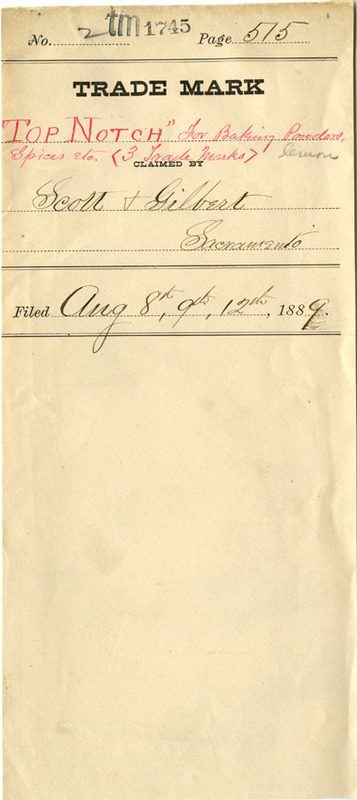 No. 2 tm 1745 Page 515
TRADE MARK
"TOP NOTCH" For Baking Powders,
Spices etc, (3 Trade Marks) lemon
CLAIMED BY
Scott & Gilbert
Sacramento
Filed Aug 8th, 9th, 12th, 1889.